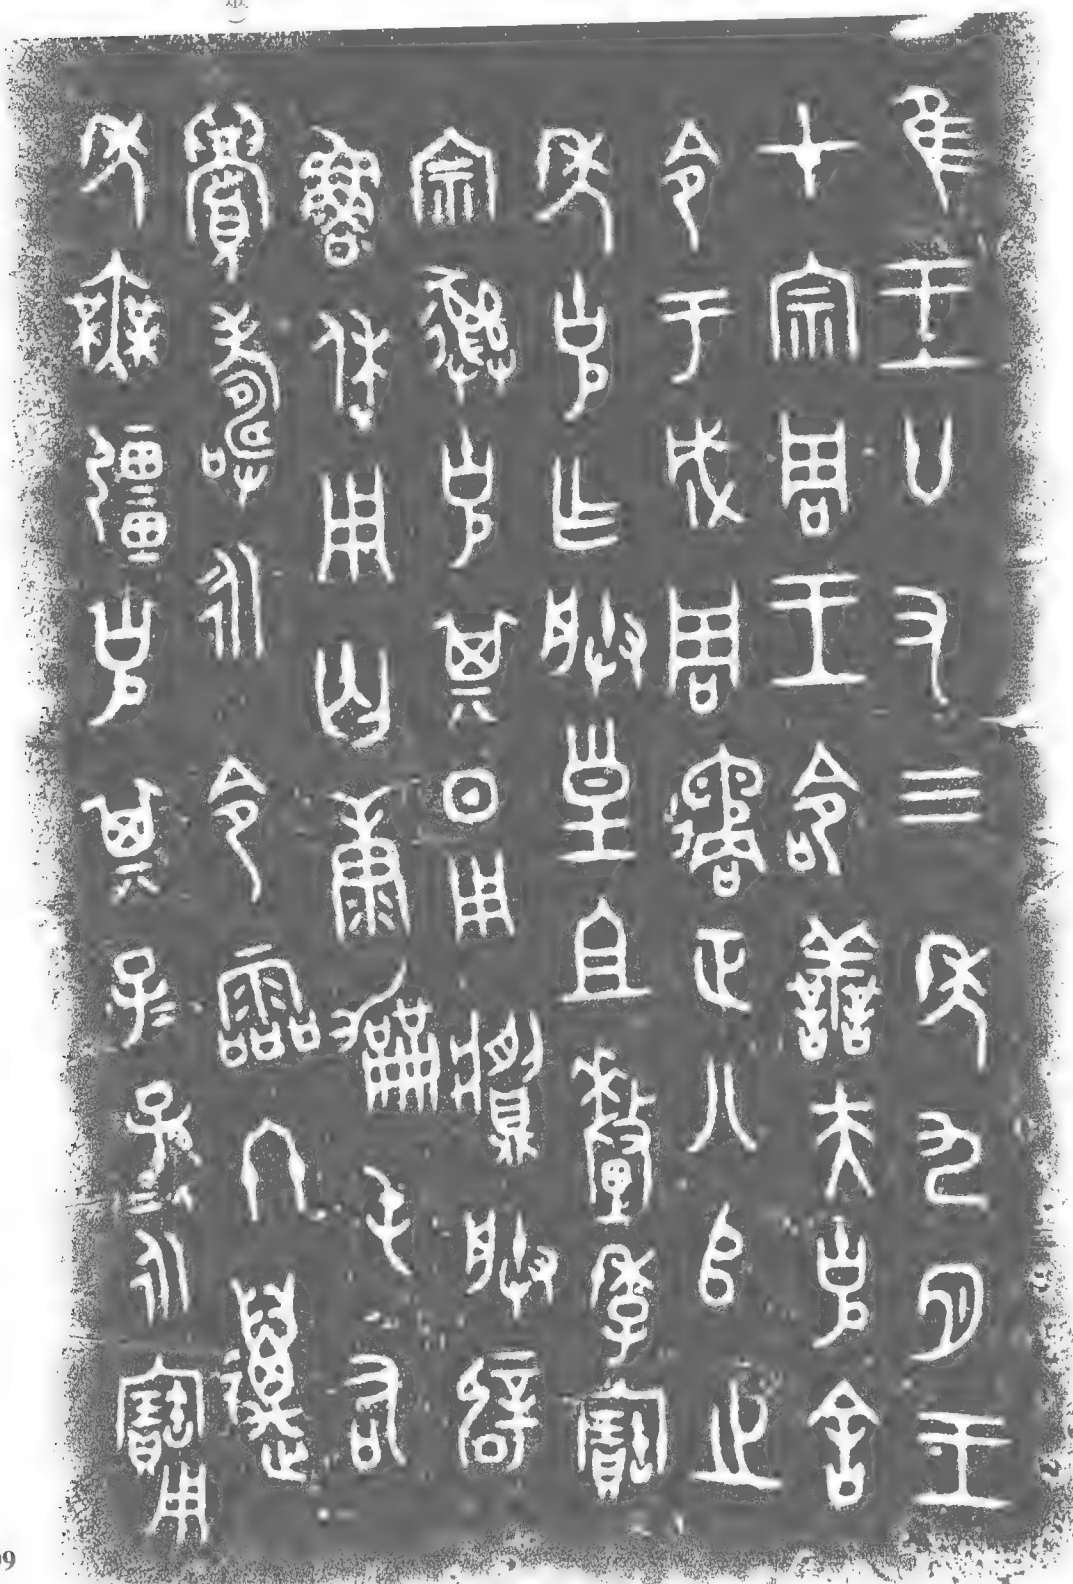 隹王廿又三年九月王
才宗周王命善夫克舍
令于成周遹正八𠂤之
年克乍朕皇且釐季寶
宗彝克其日用䵼朕辟
魯休用匄康屯右
眉壽永令霝冬邁
年無疆克其子=孫=永寶用
09